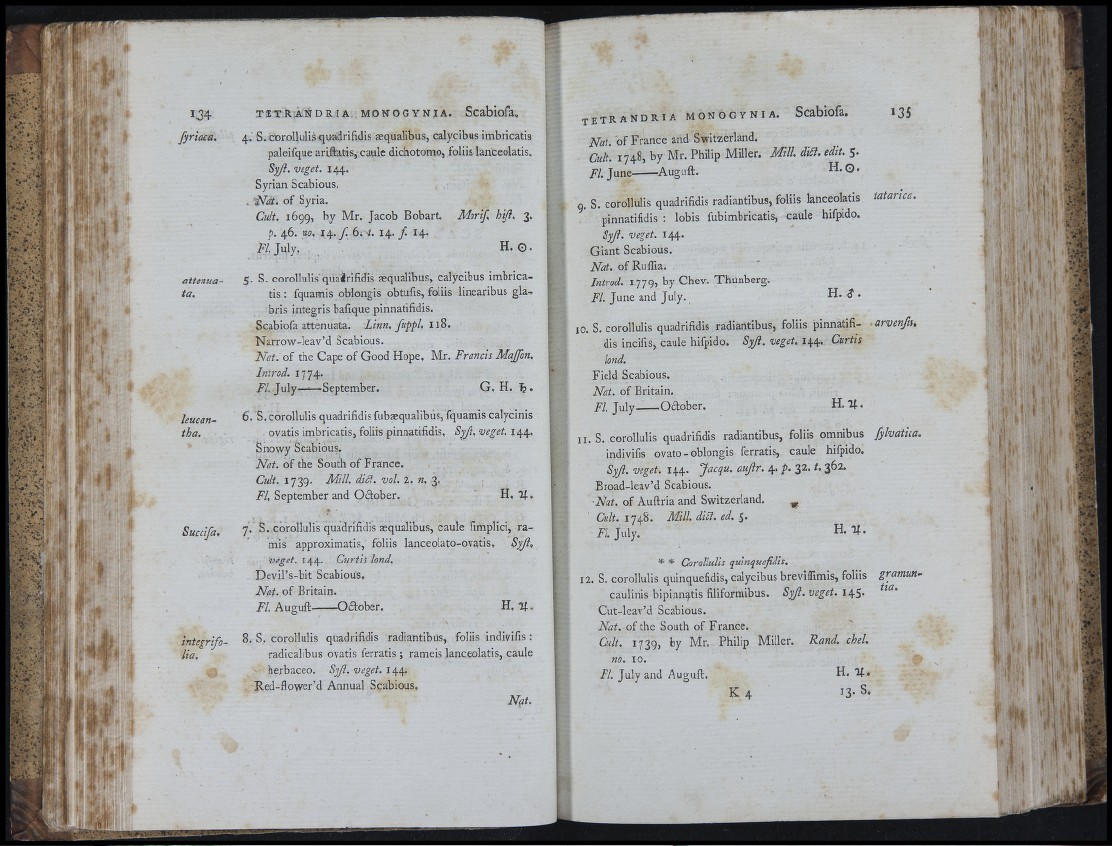 134 TETRANDRIA MONOGYNIA. Scabioſa.
ſyriaca. 4. S. corollulis quadrifidis æqualibus, calycibus imbricatis
paleiſque ariſtatis, caule dichotomo, foliis lanceolatis.
Syſt. veget. 144.
Syrian Scabious.
Nat. of Syria.
Cult. 1699, by Mr. Jacob Bobart. Moriſ. hiſt. 3.
p. 46. no. 14. ſ. 6. t. 14. f. 14.
Fl. July. H. ☉.
attenua- 5. S. corollulis quadrifidis æqualibus, calycibus imbrica-
ta. tis: ſquamis oblongis obtuſis, foliis linearibus gla-
bris integris baſique pinnatifidis.
Scabioſa attenuata. Linn. ſuppl. 118.
Narrow-leav'd Scabious.
Nat. of the Cape of Good Hope. Mr. Francis Maſſon.
Introd. 1774.
Fl. July——September. G. H. ♄.
leucan- 6. S. corollulis quadrifidis ſubæqualibus, ſquamis calycinis
tha. ovatis imbricatis, foliis pinnatifidis. Syſt. veget. 144.
Snowy Scabious.
Nat. of the South of France.
Cult. 1739. Mill. dict. vol. 2. n. 3.
Fl. September and October. H. ♃.
Succiſa. 7. S. corollulis quadrifidis æqualibus, caule ſimplici, ra-
mis approximatis, foliis lanceolato-ovatis. Syſt.
veget. 144. Curtis lond.
Devil's-bit Scabious.
Nat. of Britain.
Fl. Auguſt——October. H. ♃.
integrifo- 8. S. corollulis quadrifidis radiantibus, foliis indiviſis:
lia. radicalibus ovatis ſerratis; rameis lanceolatis, caule
herbaceo. Syſt. veget. 144.
Red-flower'd Annual Scabious.
Nat.
TETRANDRIA MONOGYNIA. Scabioſa. 135
Nat. of France and Switzerland.
Cult. 1748, by Mr. Philip Miller. Mill. dict. edit. 5.
Fl. June——Auguſt. H. ☉.
9. S. corollulis quadrifidis radiantibus, foliis lanceolatis tatarica.
pinnatifidis: lobis ſubimbricatis, caule hiſpido.
Syſt. veget. 144.
Giant Scabious.
Nat. of Ruſſia.
Introd. 1779, by Chev. Thunberg.
Fl. June and July. H. ♂.
10. S. corollulis quadrifidis radiantibus, foliis pinnatifi- arvenſis.
dis inciſis, caule hiſpido. Syſt. veget. 144. Curtis
lond.
Field Scabious.
Nat. of Britain.
Fl. July——October. H. ♃.
11. S. corollulis quadrifidis radiantibus, foliis omnibus ſylvatica.
indiviſis ovato-oblongis ſerratis, caule hiſpido.
Syſt. veget. 144. Jacqu. auſtr. 4. p. 32. t. 362.
Broad-leav'd Scabious.
Nat. of Auſtria and Switzerland.
Cult. 1748. Mill. dict. ed. 5.
Fl. July. H. ♃.
* * Corollulis quinquefidis.
12. S. corollulis quinquefidis, calycibus breviſſimis, foliis gramun-
caulinis bipinnatis filiformibus. Syſt. veget. 145. tia.
Cut-leav'd Scabious.
Nat. of the South of France.
Cult. 1739, by Mr. Philip Miller. Rand. chel.
no. 10.
Fl. July and Auguſt. H. ♃.
K 4 13. S.